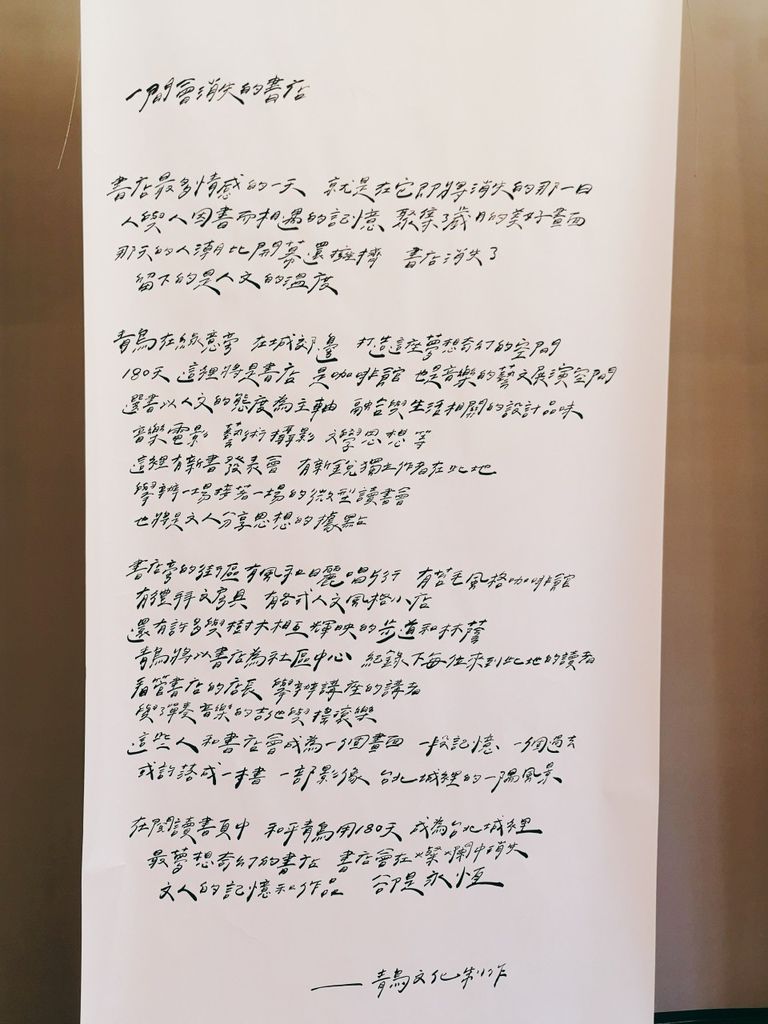 一間會消失的書店
書店最多情感的一天 就是在它即將消失的那一日
人與人因書而相遇的記憶 聚集了歲月的美好畫面
那天的人潮比開幕還擁擠 書店消失了
留下的是人文的溫度
青鳥在綠意旁 在城郭邊 打造這座夢想奇幻的空間
180天 這裡將是書店 是咖啡館 也是音樂的藝文展演空間
選書以人文的態度為主軸 融合與生活相關的設計品味
音樂電影 藝術攝影 文學思想 等
這裡有新書發表會 有新銳獨立作者在此地
舉辦一場接著一場的微型讀書會
也將是文人分享思想的據點
書店旁的街區有風和日麗唱片行 有苔毛風格咖啡館
有禮拜文房具 有各式人文風格小店
還有許多與樹木相互輝映的步道和林蔭
青鳥將以書店為社區中心 紀錄下每位來到此地的讀者
看管書店的店長 舉辦講座的講者
與彈奏音樂的吉他與搖滾樂
這些人和書店會成為一個畫面 一段記憶 一個過去
或許落成一本書 一部影像 台北城裡的一陽風景
在閱讀書頁中 和平青鳥用180天 成為台北城裡
最夢想奇幻的書店 書店會在燦爛中消失
文人的記憶和作品 卻是永恆
——青鳥文化制作